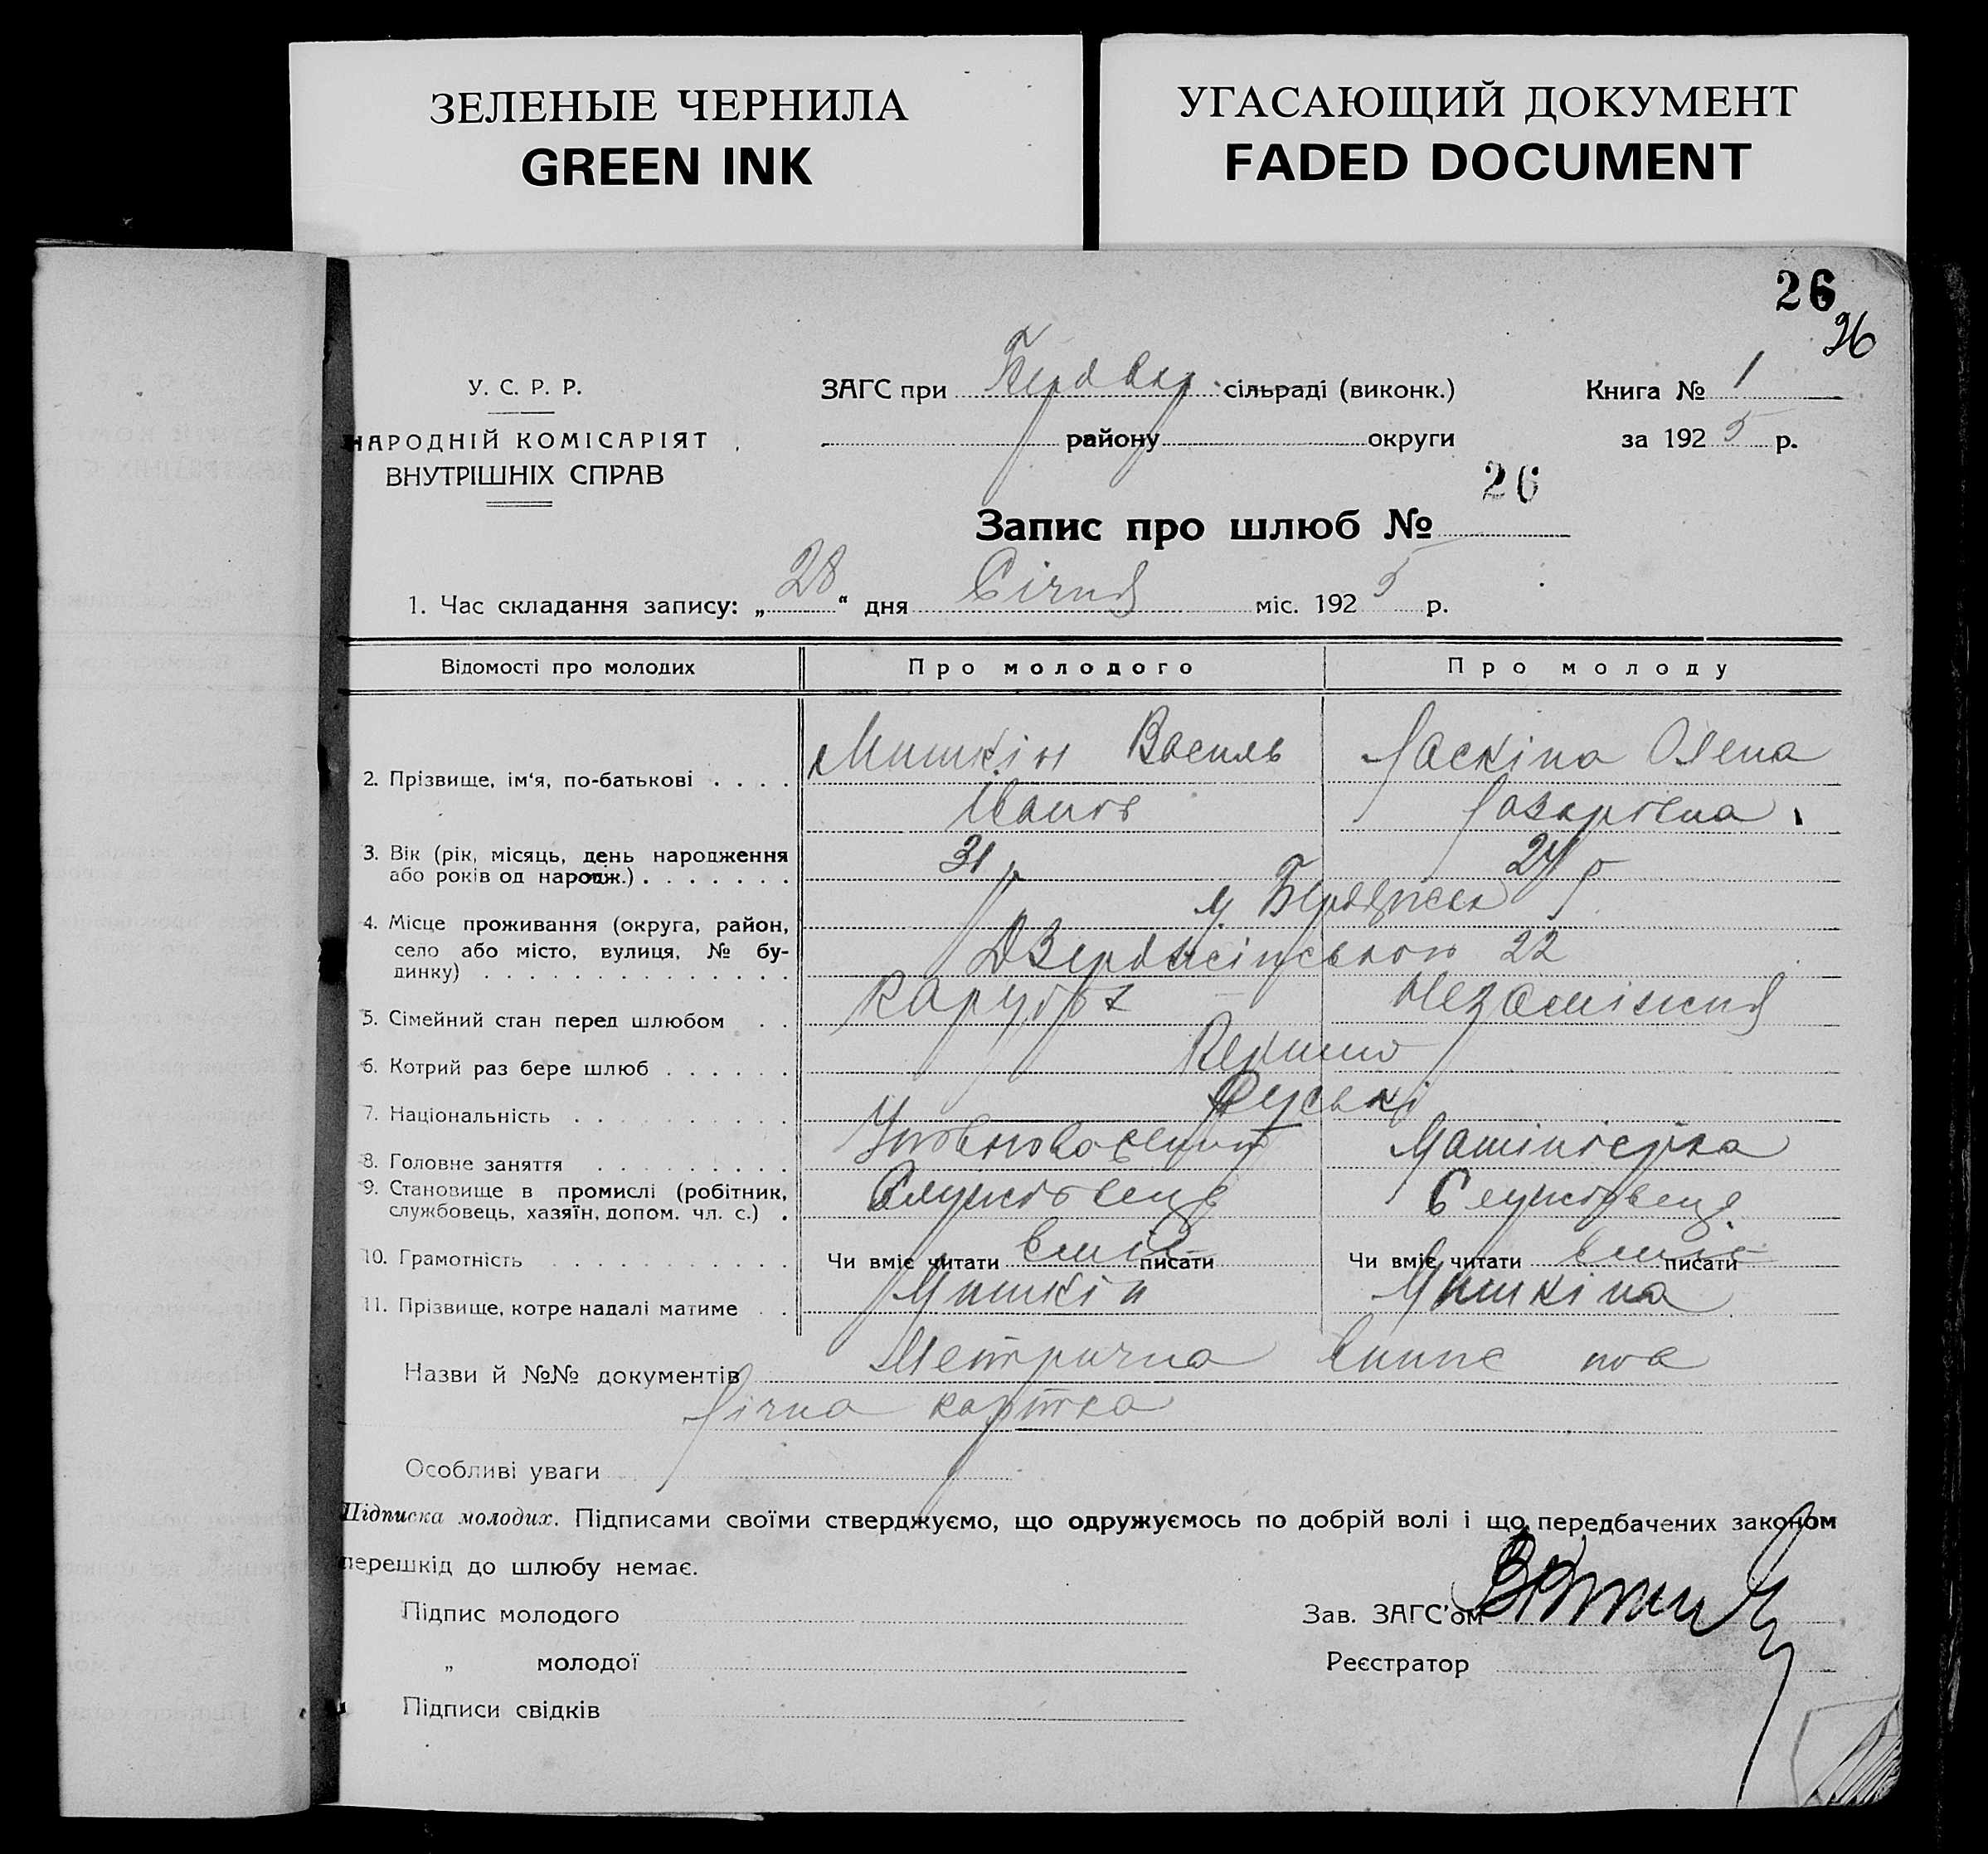 ЗЕЛЕНЫЕ ЧЕРНИЛА
GREEN INK
УГАСАЮЩИЙ ДОКУМЕНТ
FADED DOCUMENT
26
26
У. С. Р. Р.
НАРОДНІЙ КОМІСАРІЯТ
ВНУТРІШНІХ СПРАВ
ЗАГС при сільраді (виконк.)
району округи
Книга № 1
за 1925 р.
Запис про шлюб № 26
1. Час складання запису: „28“ дня Січня міс. 1925 р.
Відомості про молодих Про молодого Про молоду
2. Прізвище, ім‘я, по-батькові . . . . Мишкін Василь Ласкіна Олена
Іванов Лазарівна
3. Вік (рік, місяць, день народження 31 р 24 р
або років од народж.) . . . . . . .
4. Місце проживання (округа, район, м. Бердянськ
село або місто, вулиця, № бу- Дзержинською 22
динку) . . . . . . . . . . . . . .
5. Сімейний стан перед шлюбом . . Парубок Незаміжня
6. Котрий раз бере шлюб . . . . . . Перший
7. Національність . . . . . . . . . . Руські
8. Головне заняття . . . . . . . . . Уповноважений Машиністка
9. Становище в промислі (робітник, Службовець Службовець
службовець, хазяїн, допом. чл. с.) .
10. Грамотність . . . . . . . . . . . Чи вміє читати вміє писати Чи вміє читати вміє писати
11. Прізвище, котре надалі матиме . . Мишкін Мишкіна
Назви й №№ документів Метрична випис пос
Лічна картка
Особливі уваги
Підписка молодих. Підписами своїми стверджуємо, що одружуємось по добрій волі і що передбачених законом
перешкід до шлюбу немає.
Підпис молодого
„ молодої
Підписи свідків
Зав. ЗАГС’ом
Реєстратор